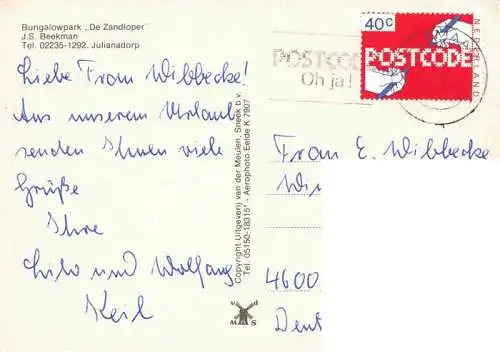 Bungalowpark „De Zandloper"
J.S. Beekman
Tel. 02235-1292. Julianadorp
Liebe Frau Wibbecke!
Aus unserem Urlaub
senden Ihnen viele
Grüße
Ihre
Lilo und Wolfgang
Keil
Copyright Uitgeverij van der Meulen, Sneek b.v.
Tel. 05150-18315* - Aerophoto Eelde K 7907
v d
M S
POSTCODE
Oh ja!
40c
POSTCODE
NEDERLAND
Frau E. Wibbecke
4600